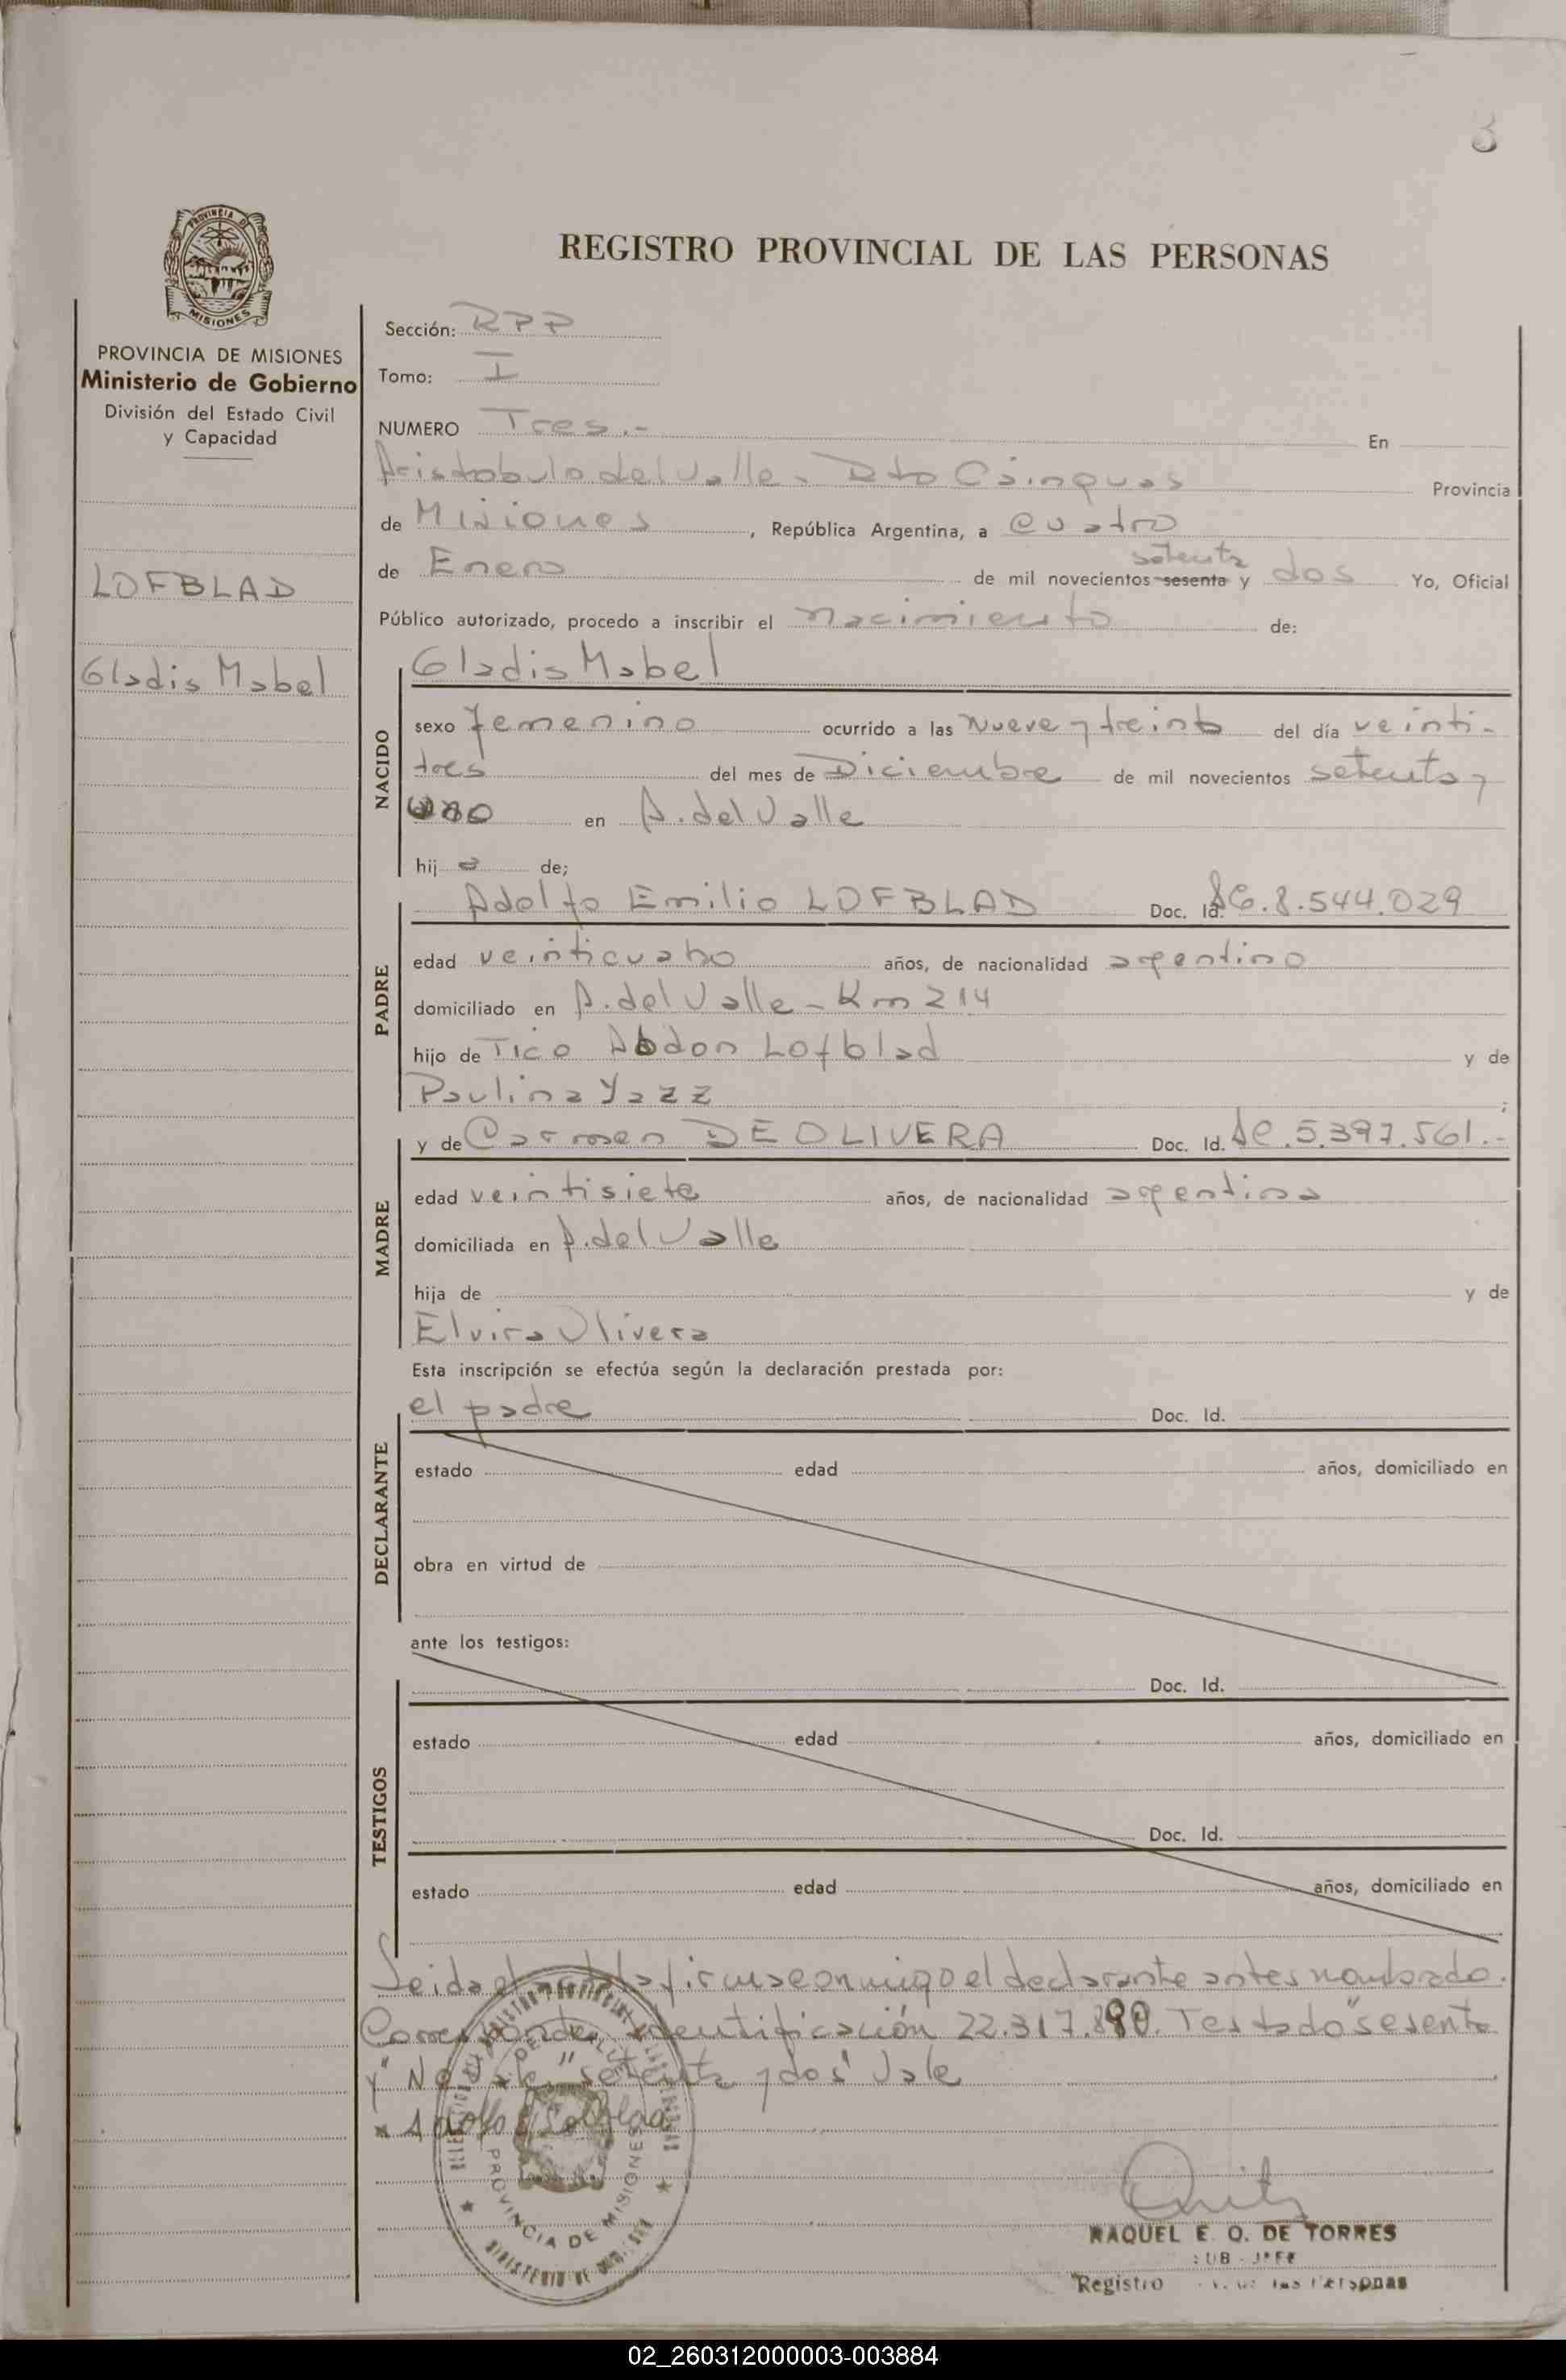 3
PROVINCIA DE MISIONES
REGISTRO PROVINCIAL DE LAS PERSONAS
PROVINCIA DE MISIONES
Ministerio de Gobierno
División del Estado Civil
y Capacidad
LOFBLAD
Gladis Mabel
Sección: RPP
Tomo: I
NUMERO Tres.- En
Aristobulo del Valle - Dto Cainguas Provincia
de Misiones, República Argentina, a cuatro
setenta
de Enero de mil novecientos sesenta y dos Yo, Oficial
Público autorizado, procedo a inscribir el nacimiento de:
NACIDO
Gladis Mabel
sexo femenino ocurrido a las nueve y treinta del día veinti-
tres del mes de Diciembre de mil novecientos setenta y
uno en A. del Valle
hija de;
PADRE
Adolfo Emilio LOFBLAD Doc. Id. 8.544.029
edad veinticuatro años, de nacionalidad argentino
domiciliado en A. del Valle - Km 214
hijo de Tico Abdon Lofblad y de
Paulina Yazz ;
MADRE
y de Carmen DE OLIVERA Doc. Id. 5.397.561.-
edad veintisiete años, de nacionalidad argentina
domiciliada en A. del Valle
hija de y de
Elvira Olivera
Esta inscripción se efectúa según la declaración prestada por:
DECLARANTE
el padre Doc. Id.
estado edad años, domiciliado en
obra en virtud de
ante los testigos:
TESTIGOS
Doc. Id.
estado edad años, domiciliado en
Doc. Id.
estado edad años, domiciliado en
Leida el acta la firma conmigo el declarante antes nombrado.
Corresponde identificación 22.317.890. Testado "sesenta
y" No vale "setenta y dos" Vale
PROVINCIA DE MISIONES
RAQUEL E. Q. DE TORRES
SUB - JEFE
Registro de las Personas
02_260312000003-003884